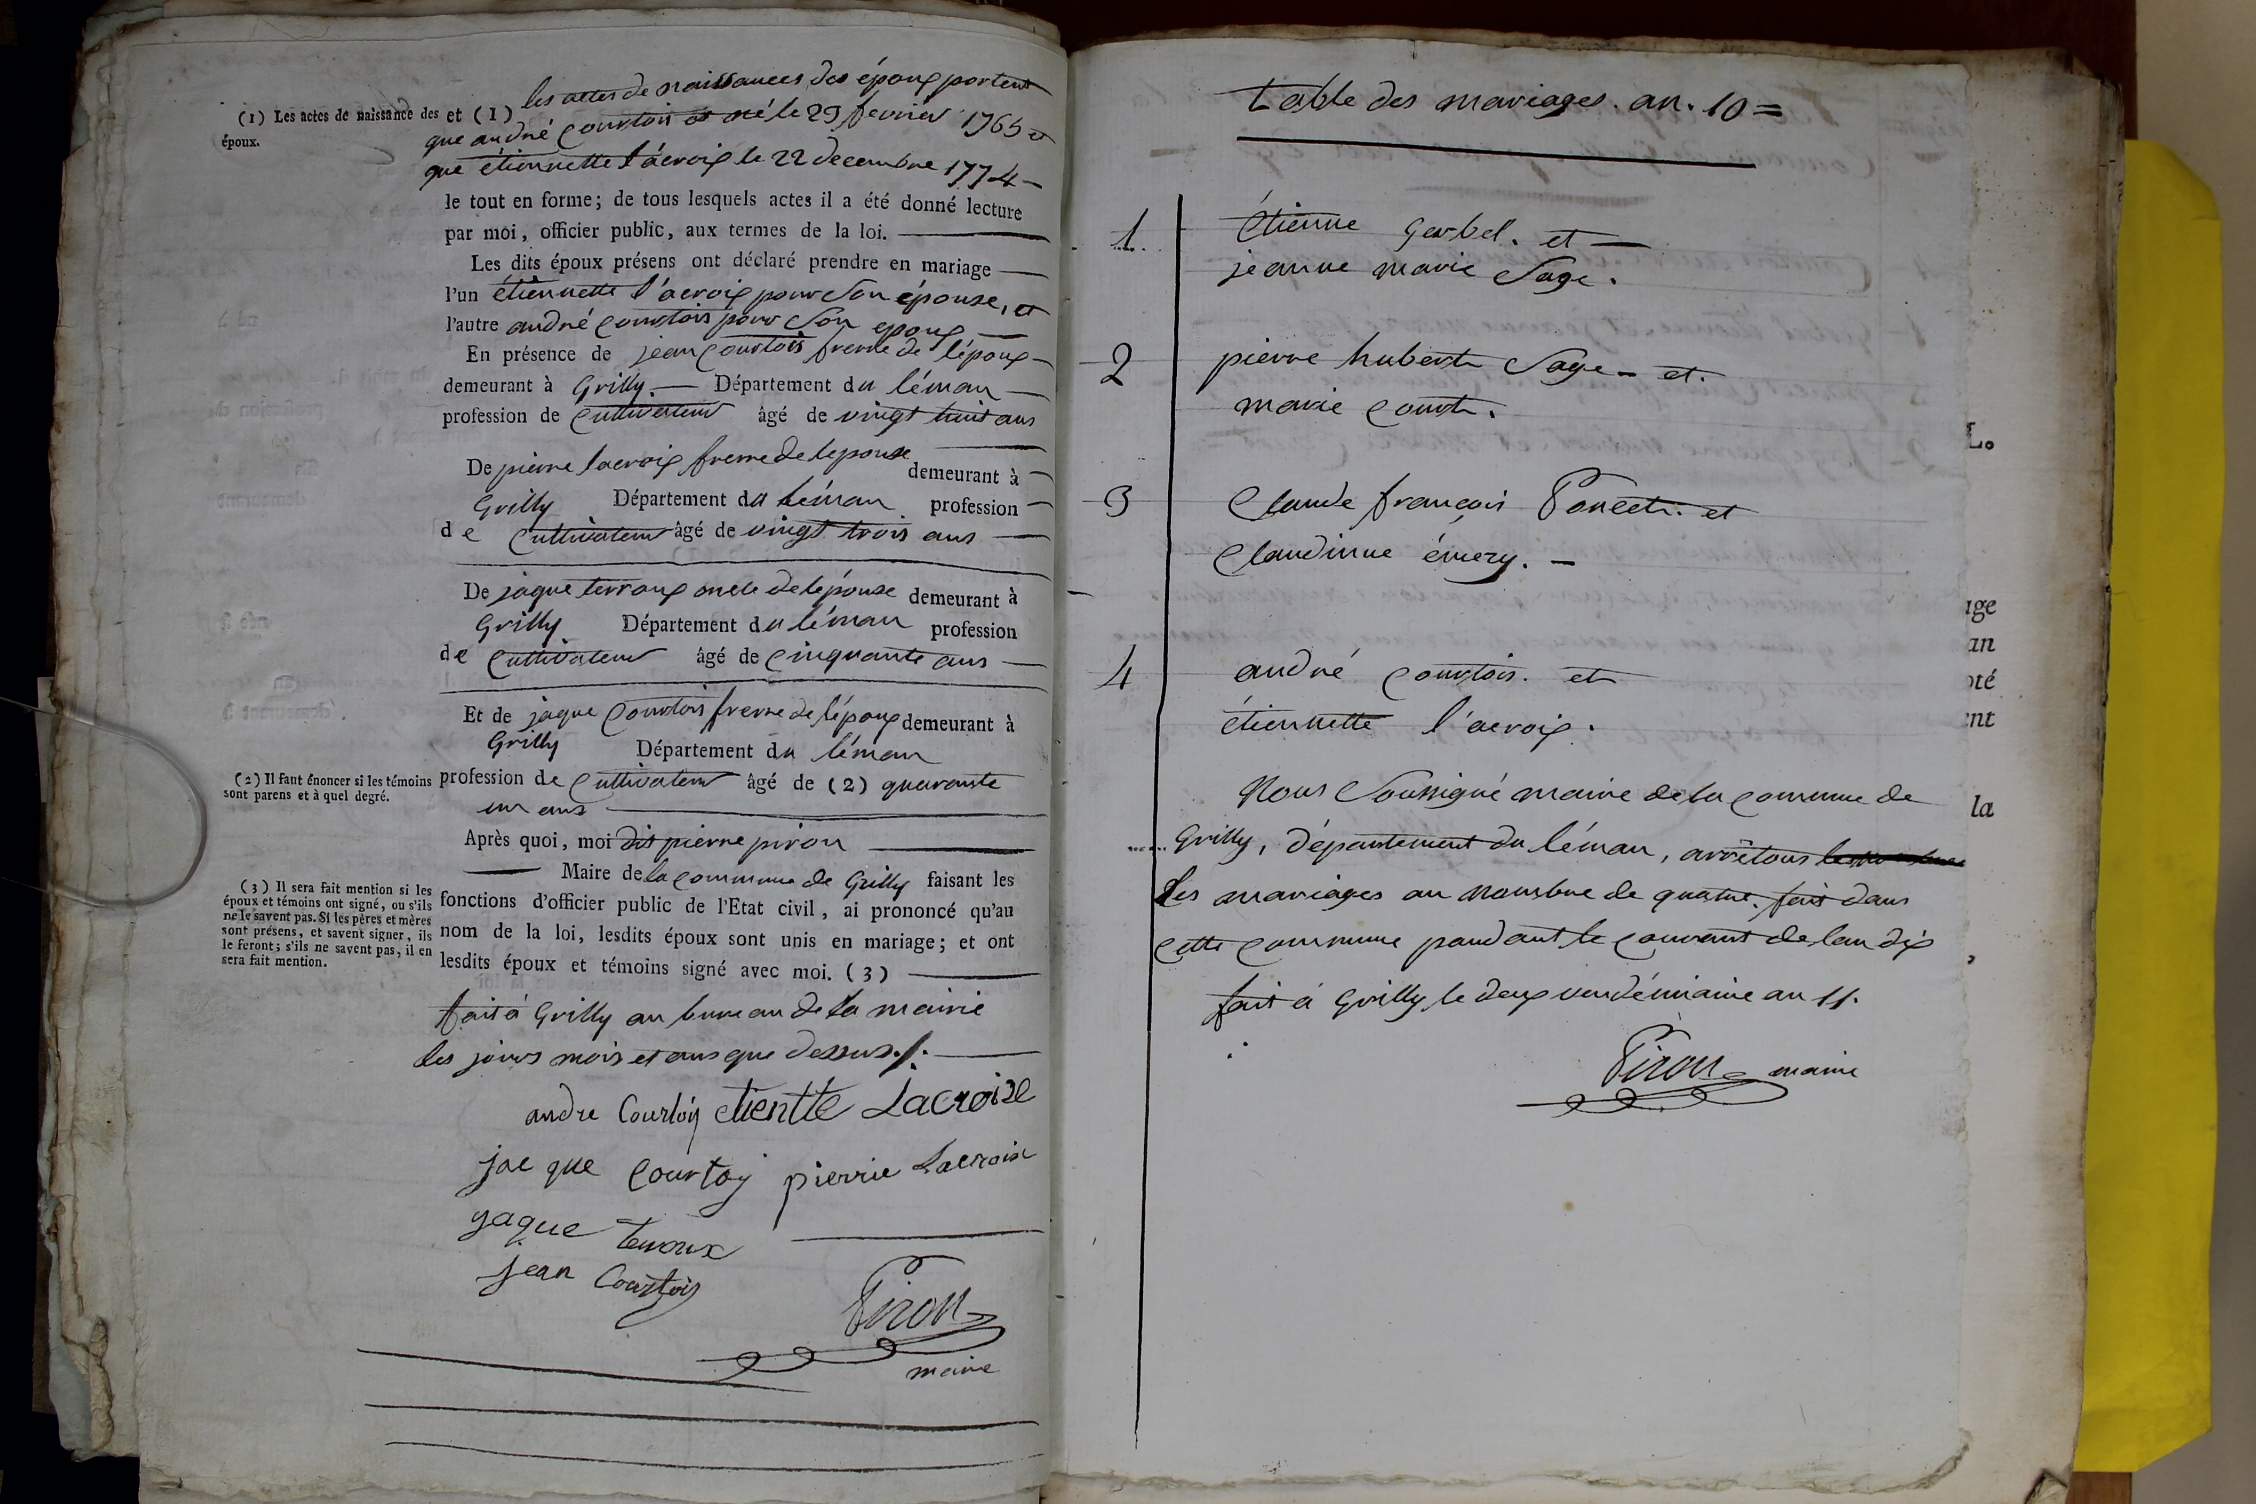 (1) Les actes de naissance des
époux.
et (1) les actes de naissances des époux portent
que andré courtois est né le 29 fevrier 1765 et
que étiennette l'acroix le 22 decembre 1774
le tout en forme; de tous lesquels actes il a été donné lecture
par moi, officier public, aux termes de la loi.
Les dits époux présens ont déclaré prendre en mariage
l'un étiennette l'acroix pour son épouse, et
l'autre andré courtois pour son epoux
En présence de jean courtois frerre de l'époux
demeurant à Grilly. Département du léman
profession de cultivateur âgé de vingt huit ans
De pierre lacroix frerre de lepouse demeurant à
Grilly Département du léman profession
de cultivateur âgé de vingt trois ans
De jaque terroux oncle de lépouse demeurant à
Grilly Département du léman profession
de cultivateur âgé de cinquante ans
Et de jaque courtois frerre de l'époux demeurant à
Grilly Département du léman
(2) Il faut énoncer si les témoins
sont parens et à quel degré.
profession de cultivateur âgé de (2) quarante
un ans
Après quoi, moi dit pierre piron
Maire de la commune de Grilly faisant les
(3) Il sera fait mention si les
époux et témoins ont signé, ou s'ils
ne le savent pas. Si les pères et mères
sont présens, et savent signer, ils
le feront; s'ils ne savent pas, il en
sera fait mention.
fonctions d'officier public de l'Etat civil, ai prononcé qu'au
nom de la loi, lesdits époux sont unis en mariage; et ont
lesdits époux et témoins signé avec moi. (3)
fait à Grilly au bureau de la mairie
les jours mois et ans que dessus./.
andre Courtois etientte Lacroixe
jacque courtoy pierrie Lacroix
yaque terroux
jean Courtois
Piron
maire
table des mariages. an. 10=
1. étienne Gerbel. et
jeanne marie Sage.
2 pierre hubert Sage et.
marie court.
3 Claude françois Poncet. et
Claudinne émery.
4 andré courtois. et
étiennette l'acroix.
Nous Soussigné maire de la commune de
Grilly, département du léman, arrêtons
les mariages au nombre de quatre. fait dans
cette commune pandant le courant de lan dix
fait à Grilly le deux vendémiaire an 11.
Piron maire
L.
age
an
oté
ent
la
,